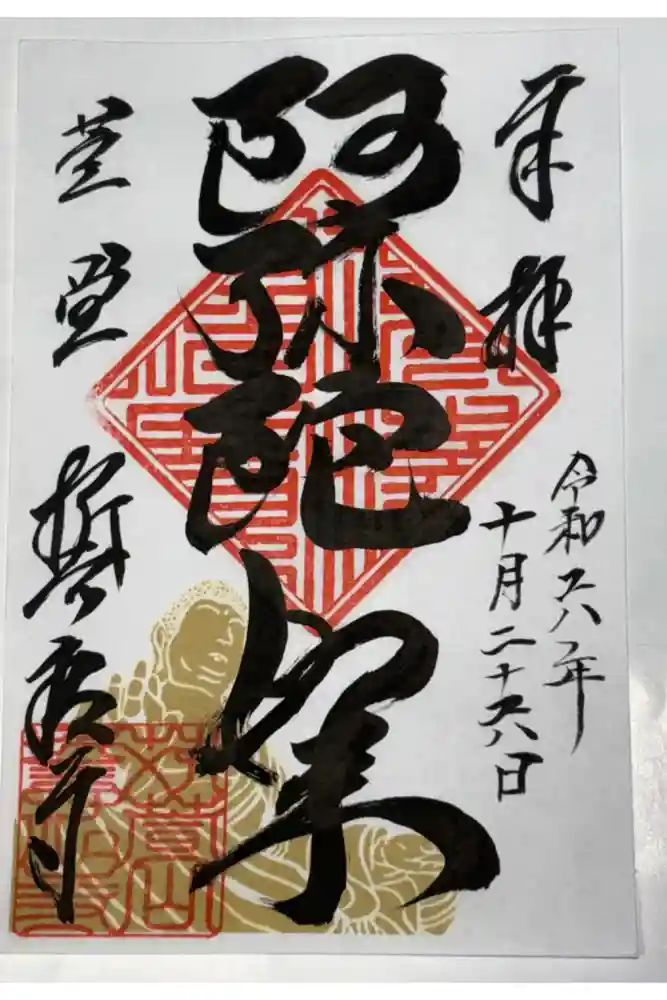 奉拝
令和六年
十月二十六日
阿弥陀如来
萱堂 誓度寺